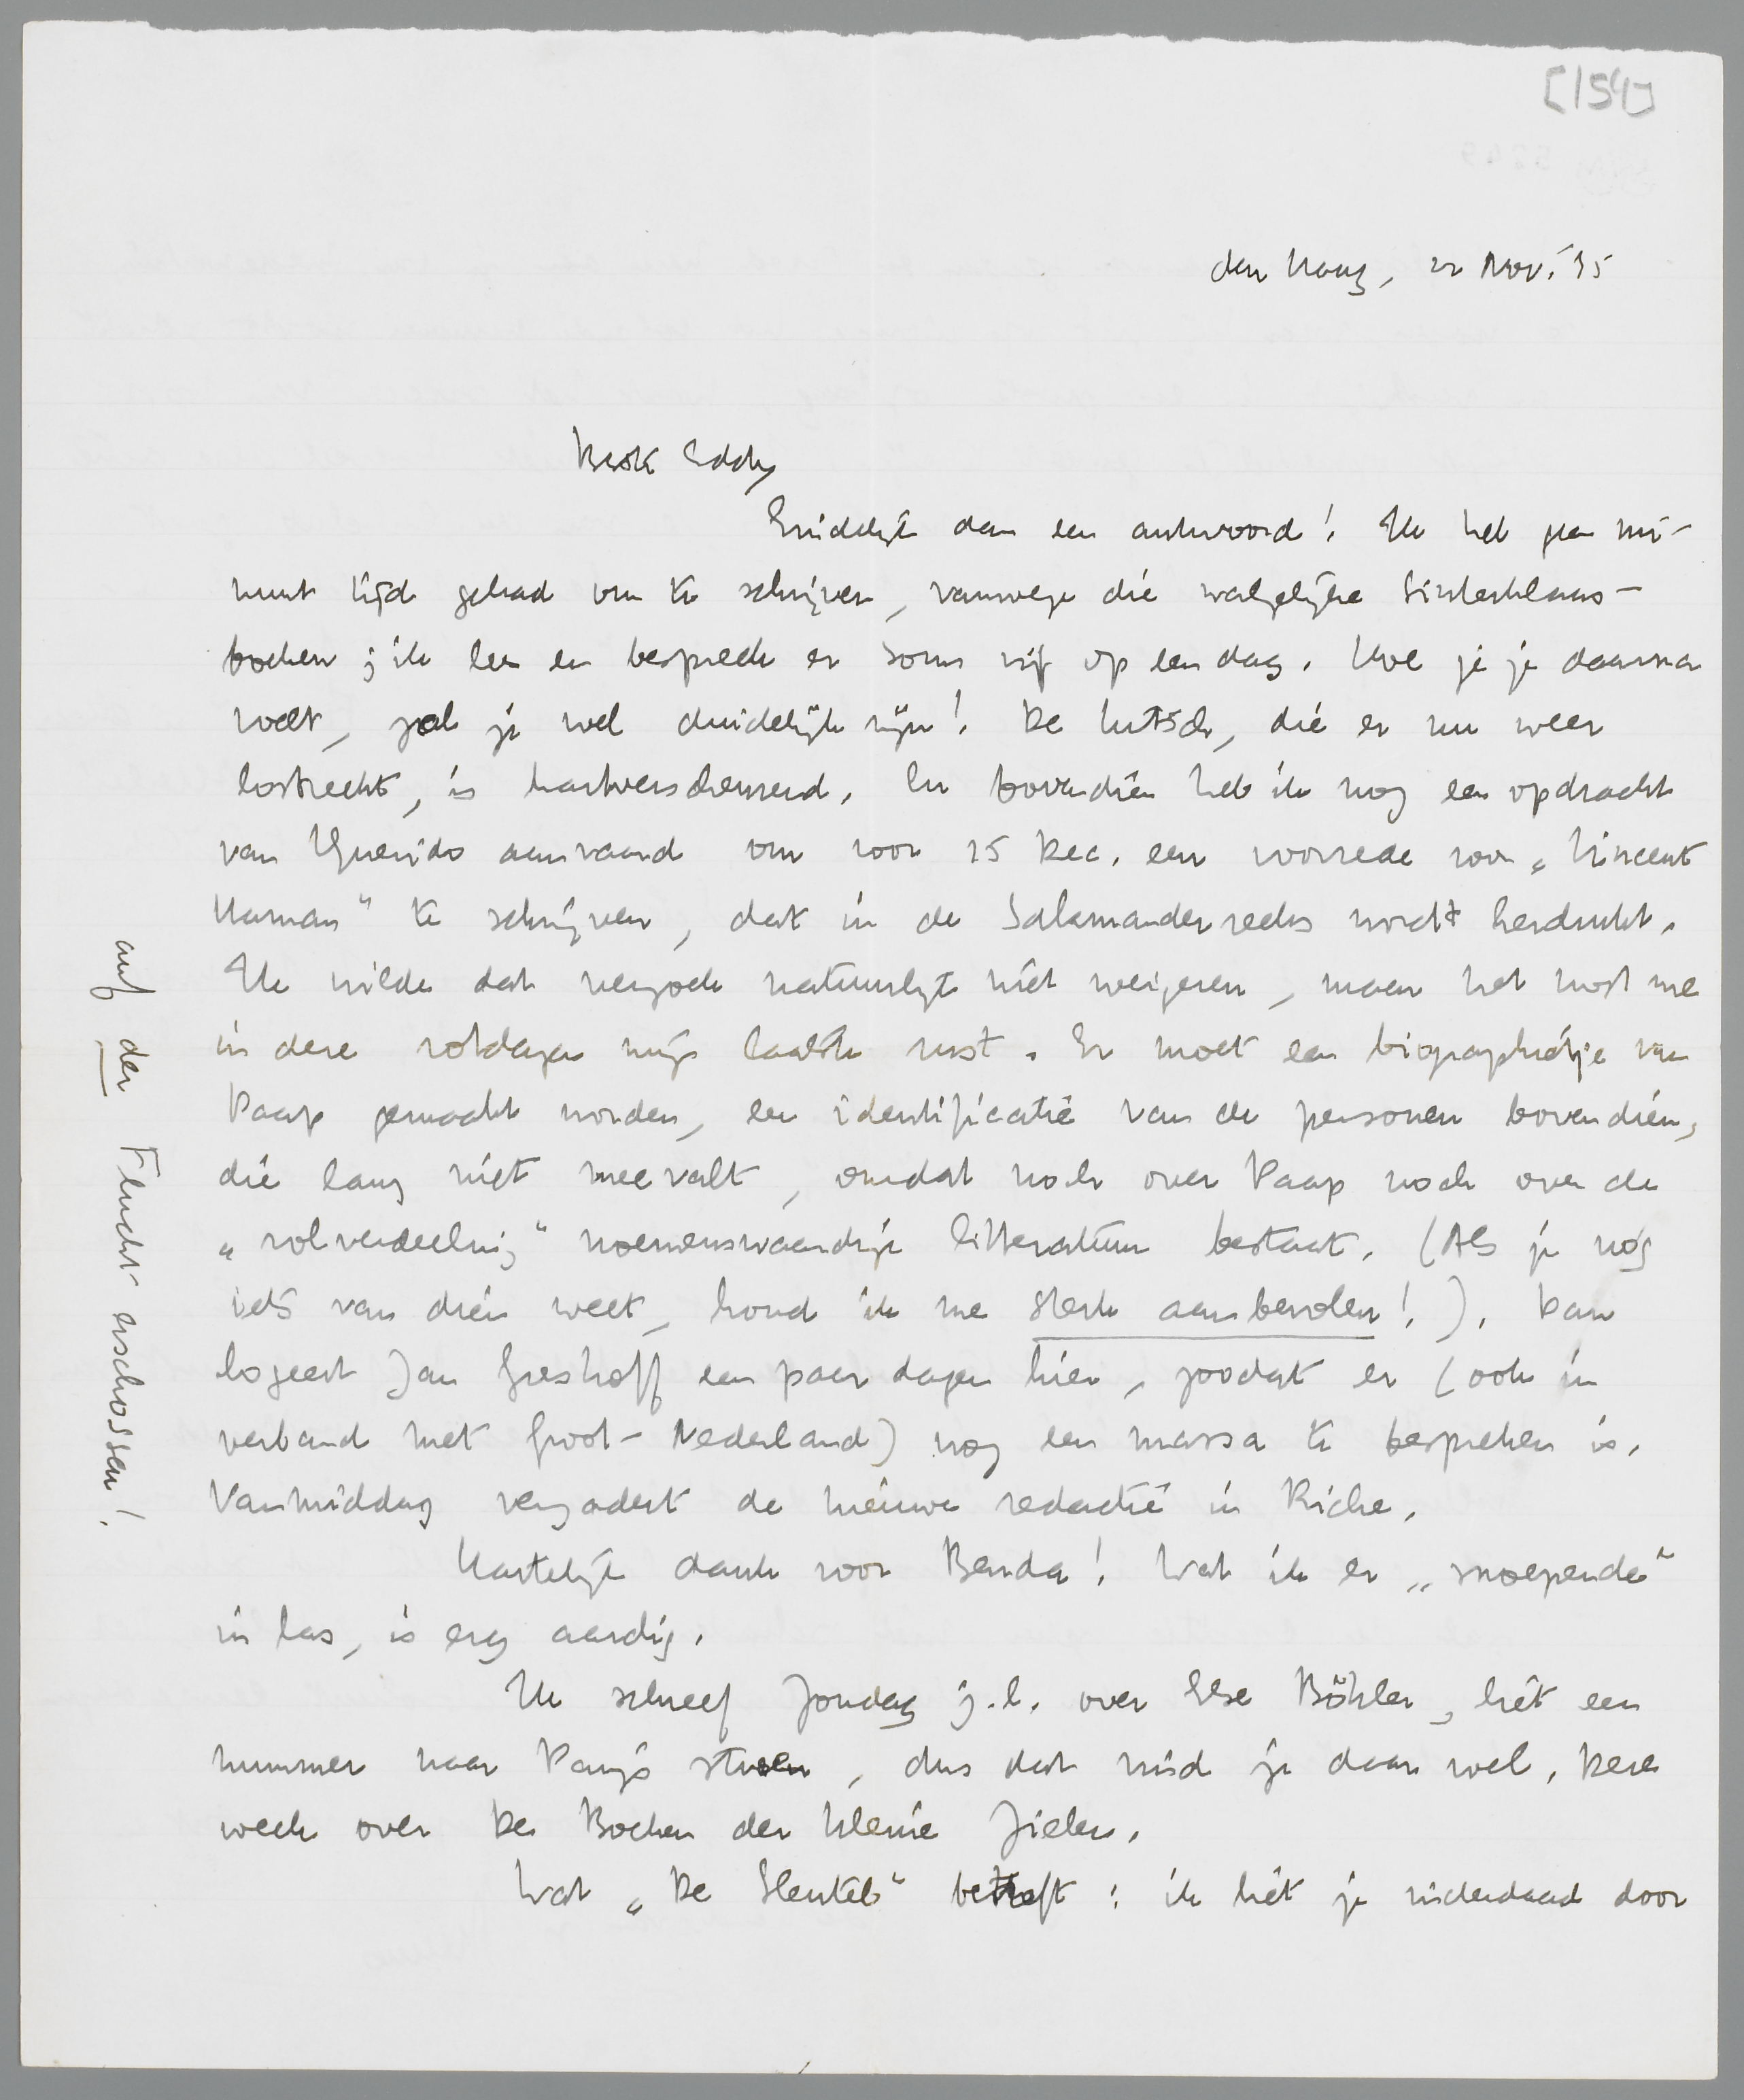 [154]
den Haag, 22 Nov. '35
Beste Eddy
Eindelijk dan een antwoord! Ik heb geen mi-
nuut tijd gehad om te schrijven, vanwege die walgelijke Sinterklaas-
boeken; ik lees en bespreek er soms vijf op een dag. Hoe je je daarna
voelt, zal je wel duidelijk zijn! De kitsch, die er nu weer
lostrekt, is hartverscheurend. En bovendien heb ik nog een opdracht
van Querido aanvaard om voor 15 Dec. een voorrede voor „Vincent
Haman" te schrijven, dat in de Salamanderreeks wordt herdrukt.
Ik wilde dat verzoek natuurlijk niet weigeren, maar het kost me
in deze rotdagen mijn laatste rust. Er moet een biographietje van
Paap gemaakt worden, een identificatie van de personen bovendien,
die lang niet meevalt, omdat noch over Paap noch over de
„rolverdeeling" noemenswaardige litteratuur bestaat. (Als je nog
iets van dien weet, houd ik me sterk aanbevolen!). Dan
logeert Jan Greshoff een paar dagen hier, zoodat er (ook in
verband met Groot-Nederland) nog een massa te bespreken is.
Vanmiddag vergadert de nieuwe redactie in Riche.
Hartelijk dank voor Benda! Wat ik er „snoepende"
in las, is erg aardig.
Ik schreef Zondag j.l. over Else Böhler, liet een
nummer naar Parijs sturen, dus dat vind je daar wel. Deze
week over De Boeken der Kleine Zielen.
Wat „De Sleutel" betreft: ik liet je inderdaad door
auf der Flucht erschossen!